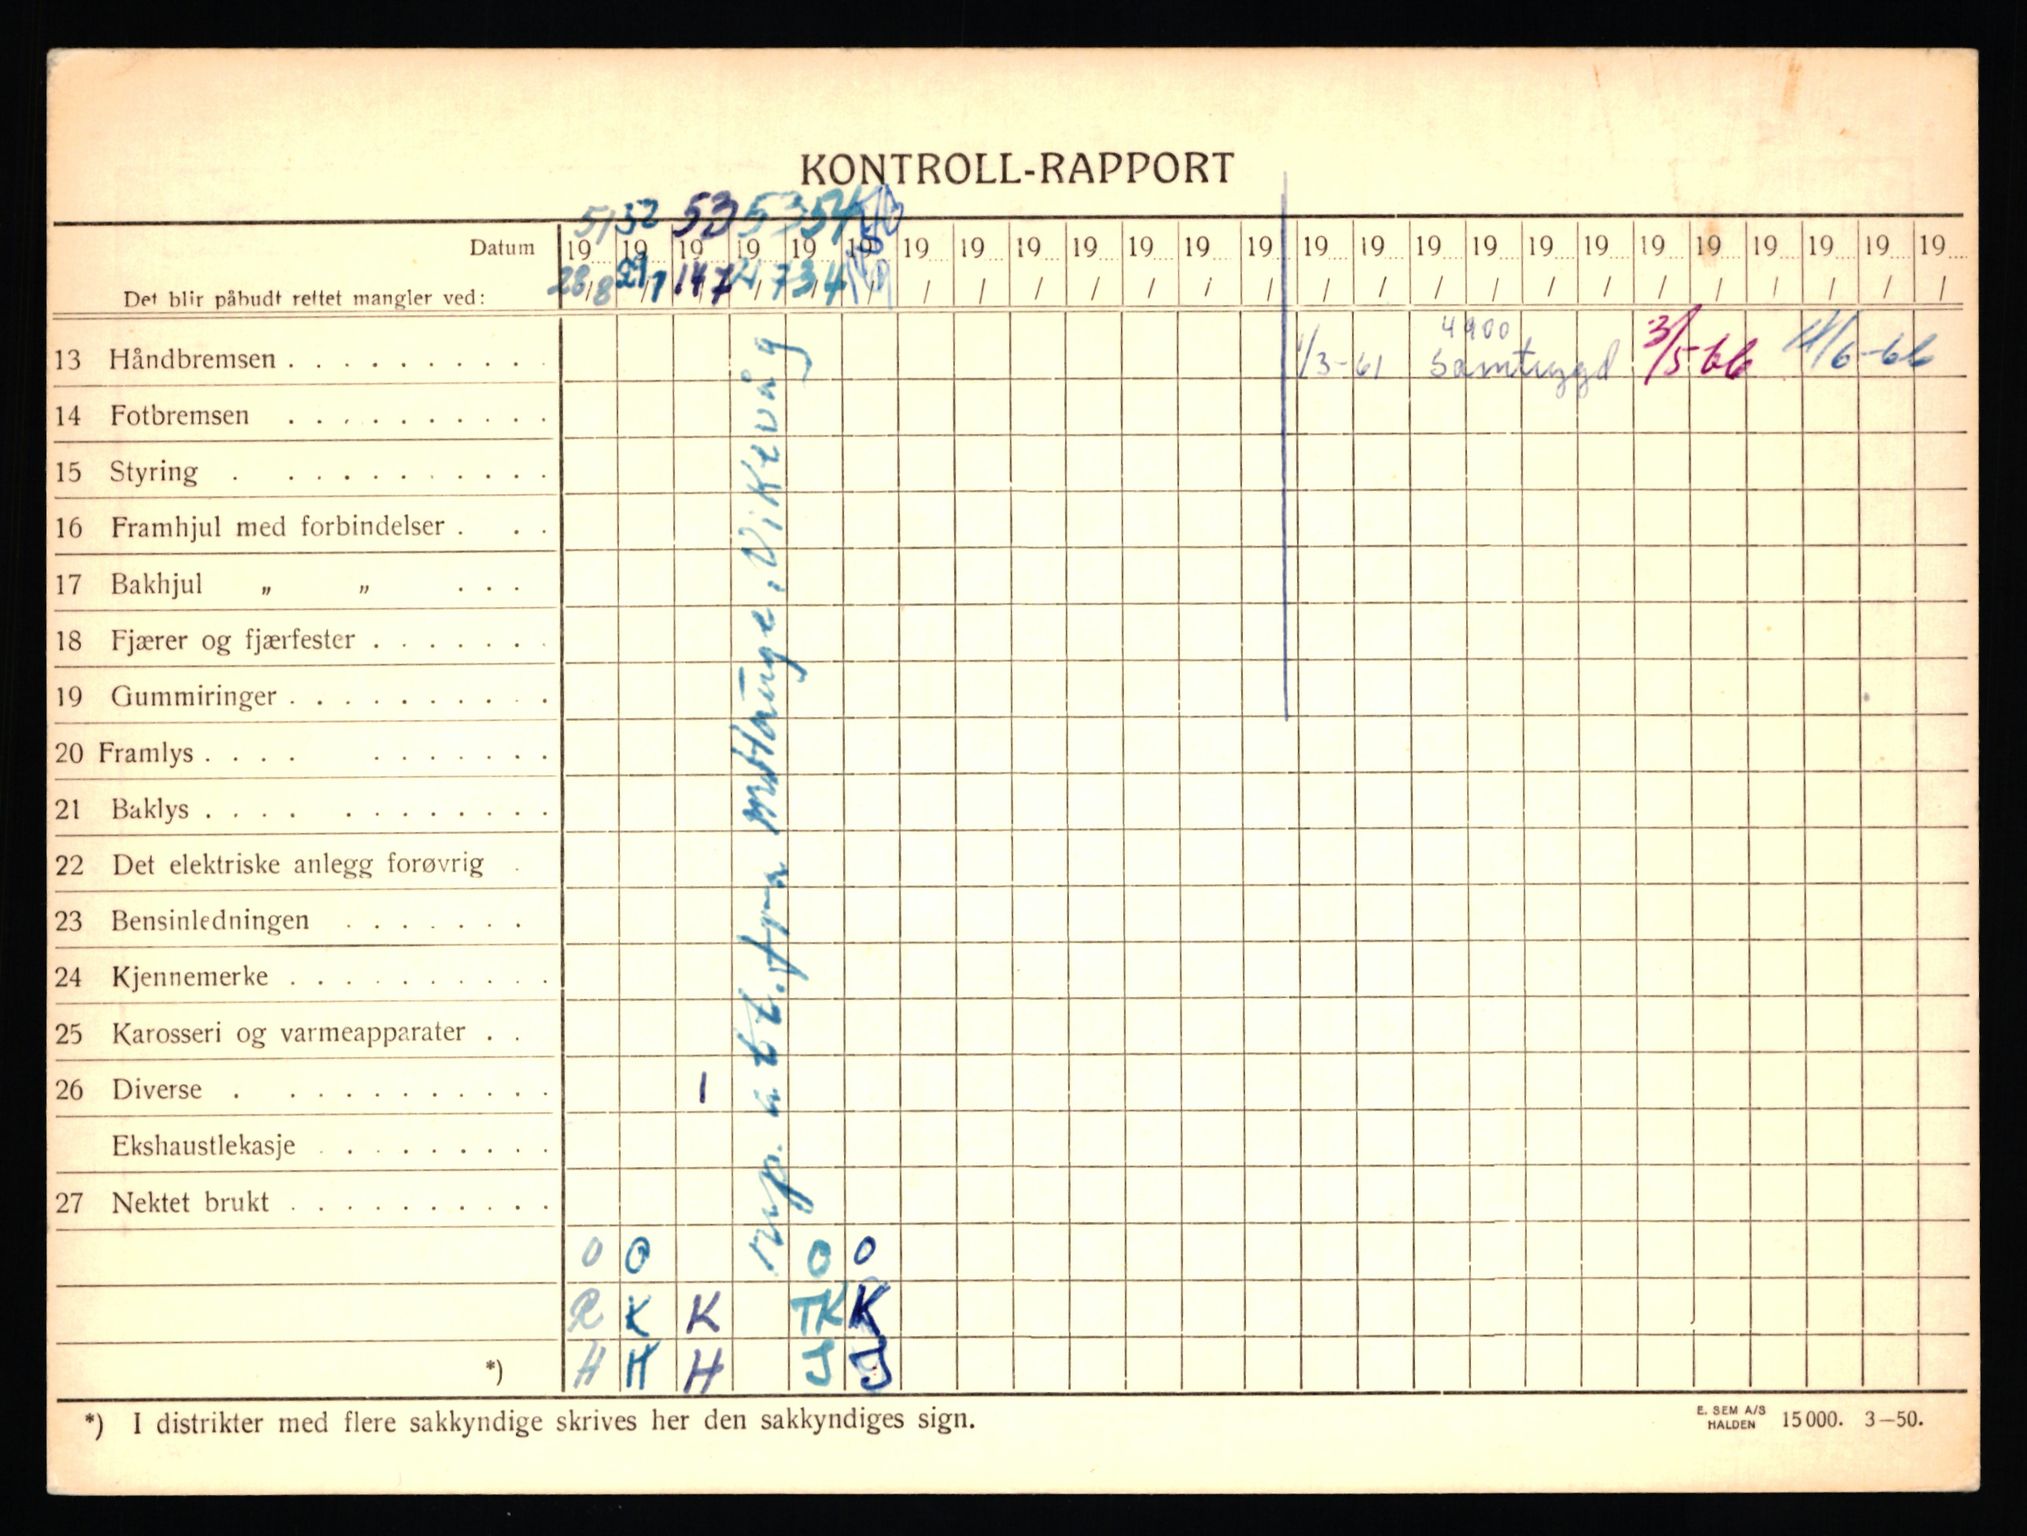 KONTROLL-RAPPORT
51 52 53 53 54
Datum 19 19 19 19 19 19 19 19 19 19 19 19 19 19 19 19 19 19 19 19 19 19 19 19 19
Det blir påbudt rettet mangler ved: 28/8 14 7 4/7 3/4
4900
13 Håndbremsen 1/3-61 Sambygd 3/5-66 11/6-66
14 Fotbremsen
15 Styring
16 Framhjul med forbindelser
17 Bakhjul „ „
18 Fjærer og fjærfester
19 Gummiringer
20 Framlys
21 Baklys
22 Det elektriske anlegg forøvrig
23 Bensinledningen
24 Kjennemerke
25 Karosseri og varmeapparater
26 Diverse 1
Ekshaustlekasje
27 Nektet brukt
rep. att. fra Vikevåg
O O O O
R K K TK K
*) H H H J J
*) I distrikter med flere sakkyndige skrives her den sakkyndiges sign.
E. SEM A/S
HALDEN 15000. 3—50.